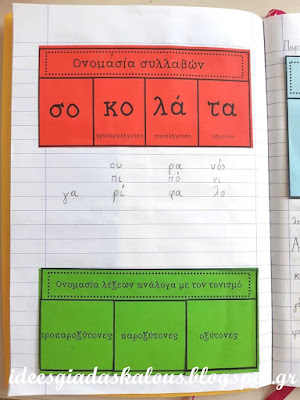 Ονομασία συλλαβών
σο κο λά τα
προπαραλήγουσα παραλήγουσα λήγουσα
ου ρα νός
πι πό νι
γα ρί φα λο
Ονομασία λέξεων ανάλογα με τον τονισμό
προπαροξύτονες παροξύτονες οξύτονες
ideesgiadaskalous.blogspot.gr